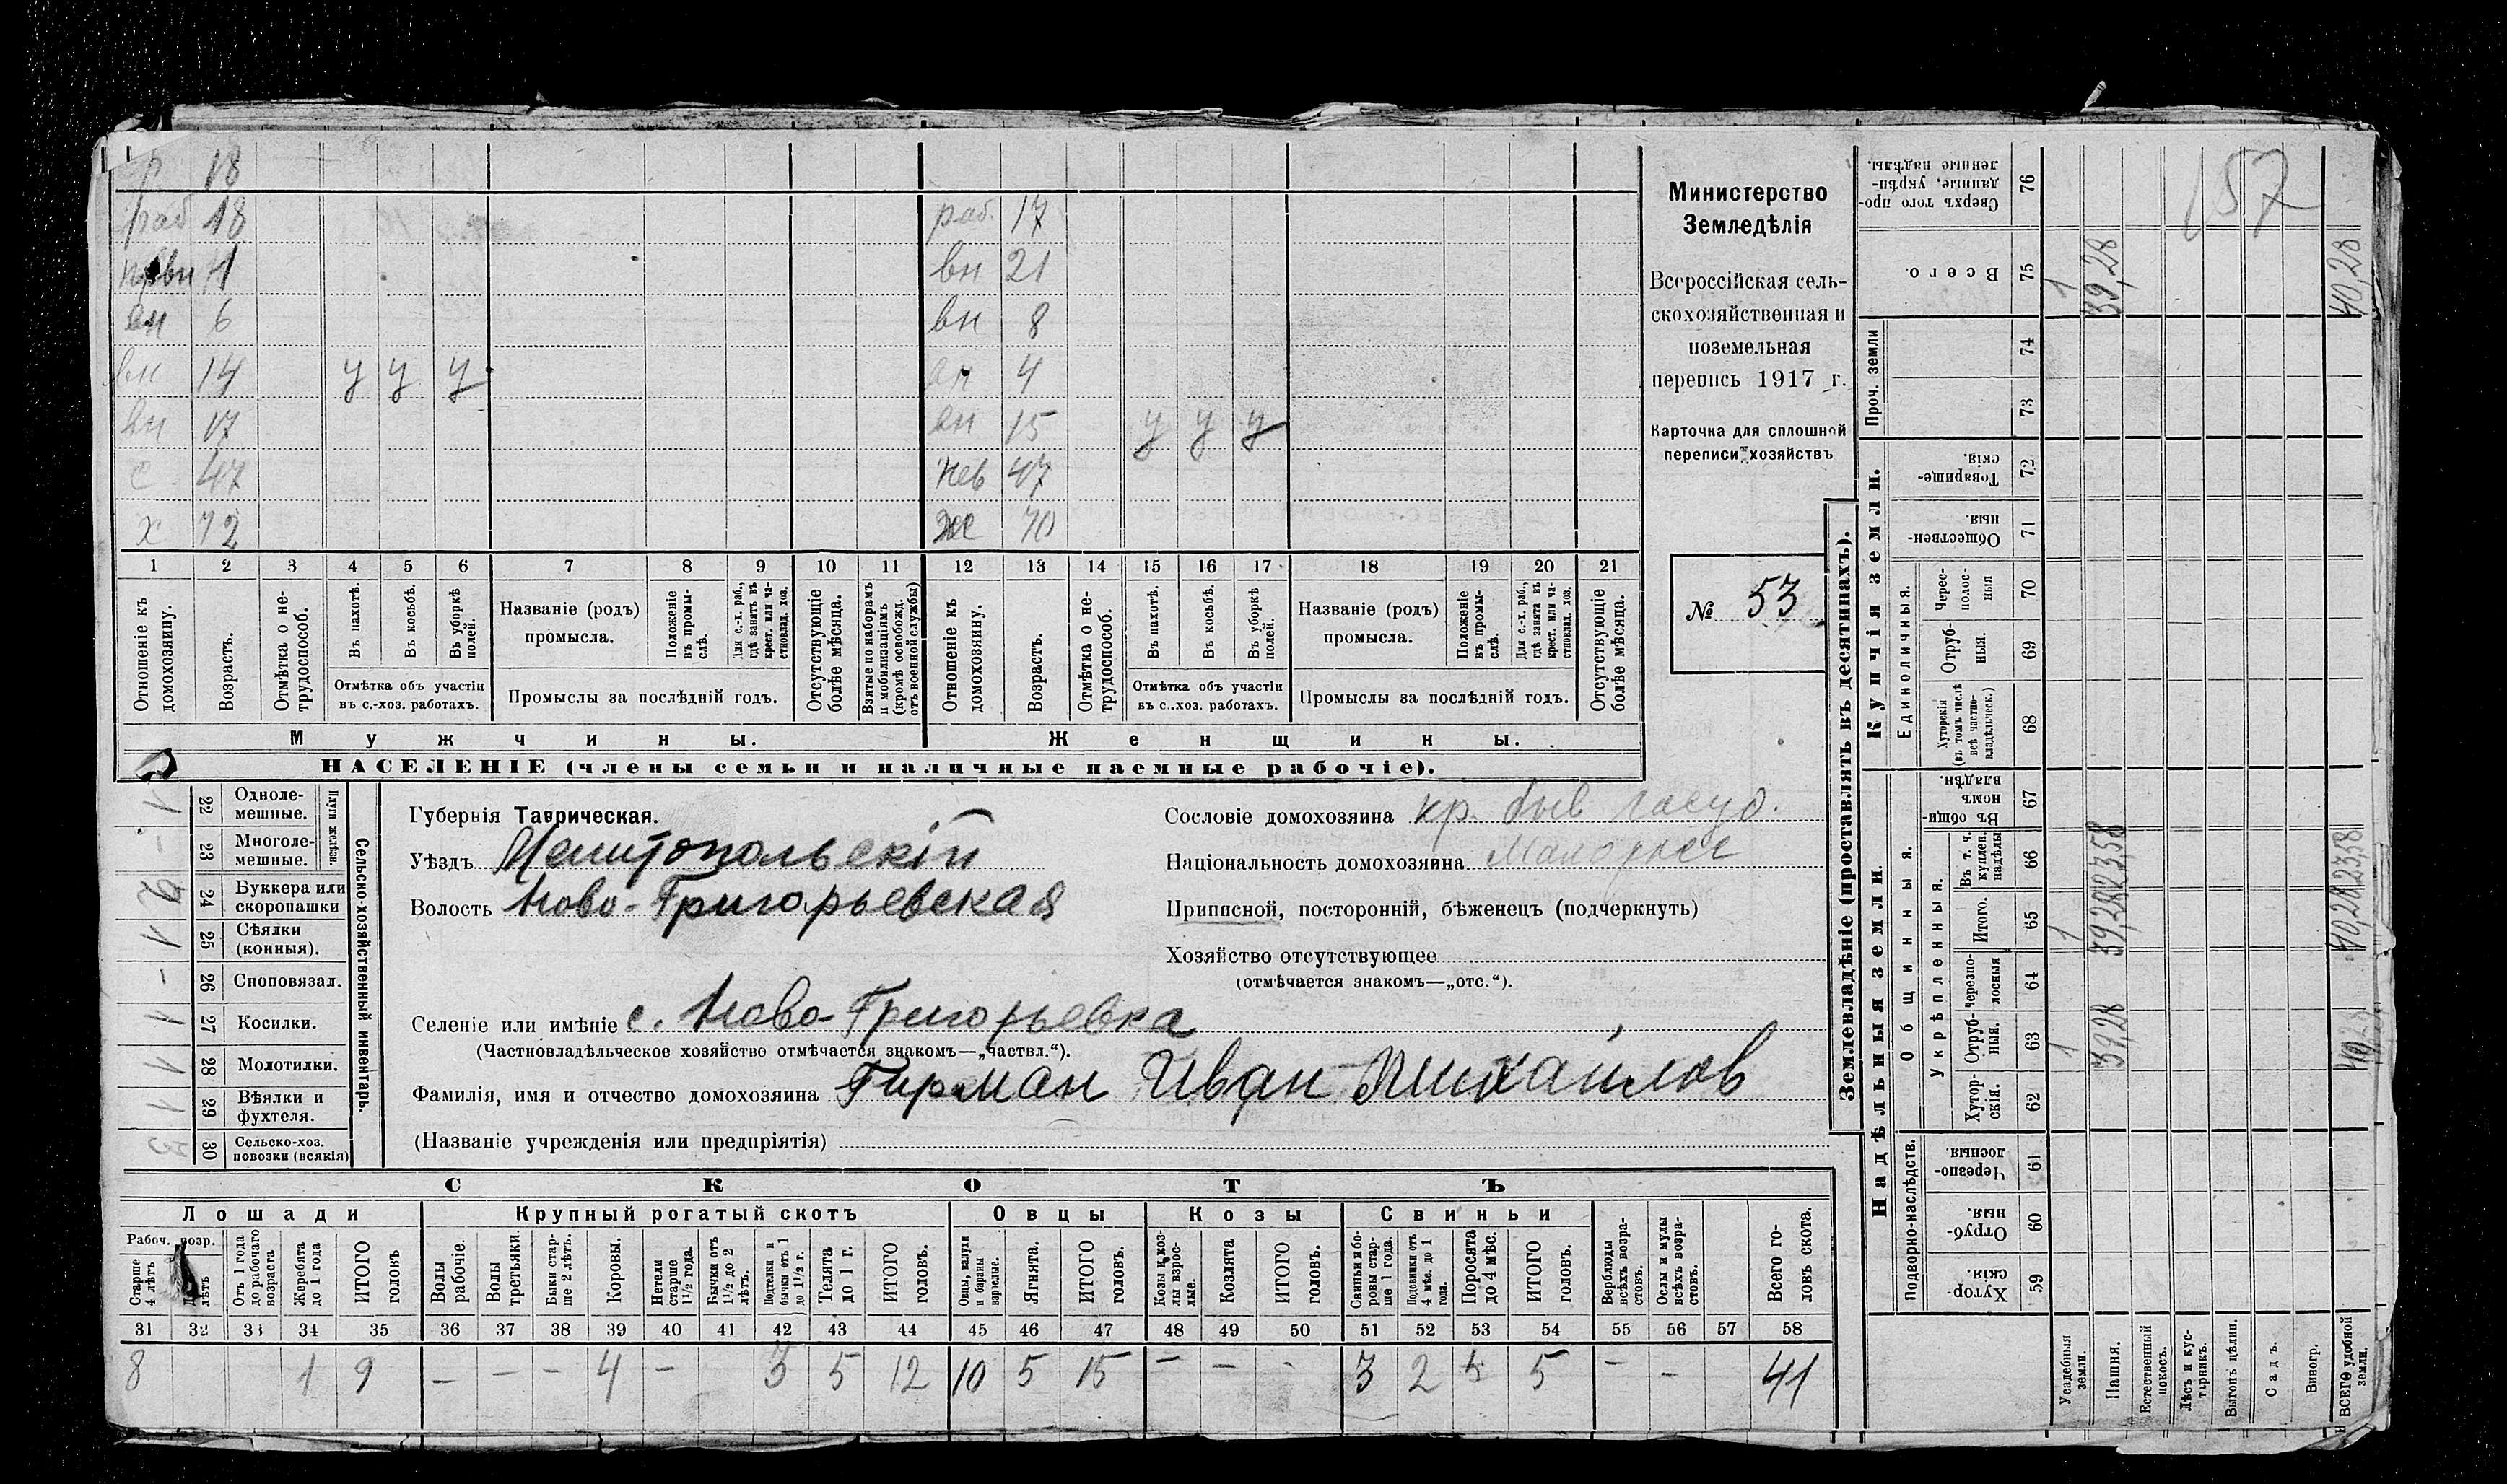 р. 18
раб 18 раб. 17
11 вн 21
вн 6 вн 8
вн 14 у у у вн 4
вн 17 вн 15 у у у
с 47 нев 47
х 72 ж 70
1 2 3 4 5 6 7 8 9 10 11 12 13 14 15 16 17 18 19 20 21
Отношеніе къ домохозяину.
Возрастъ.
Отмѣтка о не-
трудоспособ.
Въ пахотѣ.
Въ косьбѣ.
Въ уборкѣ полей.
Отмѣтка объ участіи
въ с.-хоз. работахъ.
Названіе (родъ)
промысла.
Положеніе въ промы-
слѣ.
Для с.-х. раб., гдѣ занятъ въ крест. или ча-
стновлад. хоз.
Промыслы за послѣдній годъ.
Отсутствующіе болѣе мѣсяца.
Взятые по наборамъ и мобилизаціямъ (кромѣ освобожд. отъ военной службы)
Отношеніе къ домохозяину.
Возрастъ.
Отмѣтка о не-
трудоспособ.
Въ пахотѣ.
Въ косьбѣ.
Въ уборкѣ полей.
Отмѣтка объ участіи
въ с..хоз. работахъ.
Названіе (родъ)
промысла.
Положеніе въ промы-
слѣ.
Для с.-х. раб., гдѣ занята въ крест. или ча-
стновлад. хоз.
Промыслы за послѣдній годъ.
Отсутствующіе болѣе мѣсяца.
Мужчины. Женщины.
НАСЕЛЕНІЕ (члены семьи и наличные наемные рабочіе).
Министерство
Земледѣлія
Всероссійская сель-
скохозяйственная и
поземельная
перепись 1917 г.
Карточка для сплошной
переписи хозяйствъ
№ 53
Сельско-хозяйственный инвентарь.
Плуги желѣзн.
22 Одноле-
мешные. 1
23 Многоле-
мешные. -
24 Буккера или
скоропашки 2
25 Сѣялки
(конныя). 1
26 Сноповязал. -
27 Косилки. 1
28 Молотилки. 1
29 Вѣялки и
фухтеля. 1
30 Сельско-хоз.
повозки (всякія) 3
Губернія Таврическая.
Уѣздъ Мелитопольскій
Волость Ново-Григорьевская
Селеніе или имѣніе с. Ново-Григорьевка
(Частновладѣльческое хозяйство отмѣчается знакомъ—„частвл.“).
Фамилія, имя и отчество домохозяина Гирман Иван Михайлов
(Названіе учрежденія или предпріятія)
Сословіе домохозяина кр. быв госуд.
Національность домохозяина Малорусс
Приписной, посторонній, бѣженецъ (подчеркнуть)
Хозяйство отсутствующее
(отмѣчается знакомъ—„отс.“).
СКОТЪ
Лошади Крупный рогатый скотъ Овцы Козы Свиньи
Рабоч. возр.
Старше 4 лѣтъ
лѣтъ
Отъ 1 года до рабочаго возраста
Жеребята до 1 года
ИТОГО головъ
Волы рабочіе.
Волы третьяки.
Быки стар-
ше 2 лѣтъ.
Коровы.
Нетели старше 1½ года.
Бычки отъ 1½ до 2 лѣтъ.
Подтелки и бычки отъ 1 до 1½ г.
Телята до 1 г.
ИТОГО головъ.
Овцы, валухи и бараны взрослые.
Ягнята.
ИТОГО головъ.
Козы и коз-
лы взрос-
лые.
Козлята
ИТОГО головъ.
Свиньи и бо-
ровы стар-
ше 1 года.
Подсвинки отъ 4 мѣс. до 1 года.
Поросята до 4 мѣс.
ИТОГО головъ.
Верблюды всѣхъ возра-
стовъ.
Ослы и мулы всѣхъ возра-
стовъ.
Всего го-
ловъ скота.
31 32 33 34 35 36 37 38 39 40 41 42 43 44 45 46 47 48 49 50 51 52 53 54 55 56 57 58
8 1 9 – – – 4 – 3 5 12 10 5 15 – – - 3 2 5 – – 41
Землевладѣніе (проставлять въ десятинахъ).
Надѣльныя земли. Купчія земли. Проч. земли
Подворно-наслѣдств. Общинныя. Укрѣпленныя. Единоличныя.
59 Хутор-
скія.
60 Отруб-
ныя.
61 Черезпо-
лосныя
62 Хутор-
скія.
63 Отруб-
ныя. 1 39,28 40,28
64 Черезпо-
лосныя
65 Итого. 1 39,28 40,28
66 Въ т. ч. куплен. надѣлы 23,58 23,58
67 Въ общин-
номъ владѣн.
68 Хуторскія (въ томъ числѣ всѣ частно-
владѣльческ.)
69 Отруб-
ныя.
70 Черес-
полос-
ныя
71 Обществен-
ныя.
72 Товарище-
скія.
73
74
75 Всего. 1 39,28 40,28
76 Сверхъ того про-
данные, укрѣп-
ленные надѣлы.
157
Усадебныя земли.
Пашня.
Естественный покосъ.
Лѣсъ и кус-
тарникъ.
Выгонъ цѣлин.
Садъ.
Виногр.
ВСЕГО удобной земли.